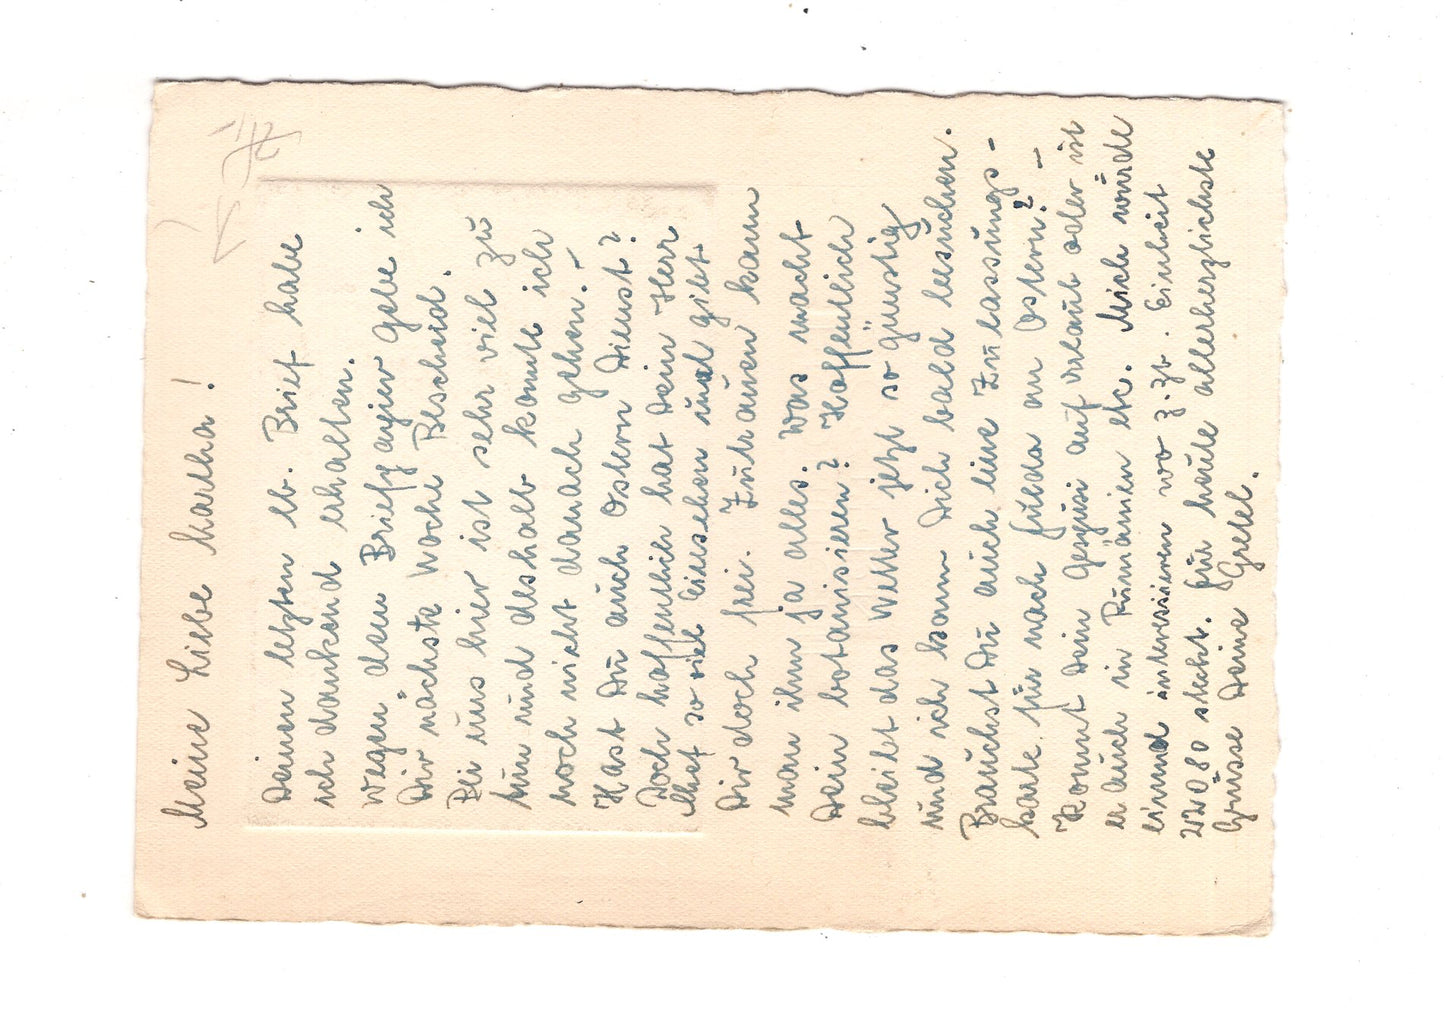 Meine Liebe Martha!
Deinen letzten lb. Brief habe
ich dankend erhalten.
Wegen dem Briefpapier gebe ich
Dir nächste Woche Bescheid.
Bei uns hier ist sehr viel zu
tun und deshalb konnte ich
noch nicht danach gehen. –
Hast Du auch Ostern Dienst?
Doch hoffentlich hat Dein Herr
Chef so viel Einsehen und gibt
Dir doch frei. Zutrauen kann
man ihm ja alles. Was macht
Dein botanisieren? Hoffentlich
bleibt das Wetter jetzt so günstig
und ich kann Dich bald besuchen.
Brauchst Du auch eine Zulassungs-
karte für nach Fulda an Ostern? –
Kommt Dein Gespusi auf Urlaub oder ist
er auch in Rumänien etc. Mich würde
einmal interessieren wo z. Zt. Einheit
22080 steht. Für heute allerherzlichste
Grüsse Deine Gretel.